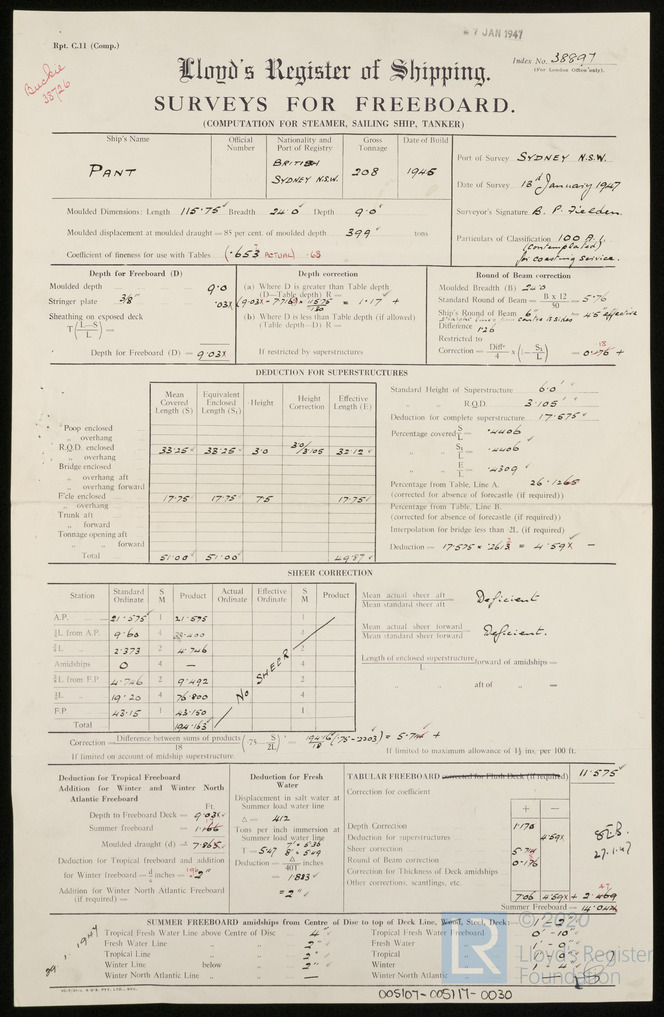 7 JAN 1947
Rpt. C.11 (Comp.)
Index No. 38897
(For London Office only).
Buckie
38726
Lloyd's Register of Shipping.
SURVEYS FOR FREEBOARD.
(COMPUTATION FOR STEAMER, SAILING SHIP, TANKER)
Ship's Name
Official Number
Nationality and Port of Registry
Gross Tonnage
Date of Build
PANT
BRITISH
SYDNEY N.S.W.
208
1945
Port of Survey SYDNEY N.S.W.
Date of Survey 13d January 1947
Surveyor's Signature B. P. Fielden.
Particulars of Classification 100 A.1.
(contemplated)
for coasting service.
Moulded Dimensions: Length 115.75 Breadth 24.0 Depth 9.0
Moulded displacement at moulded draught = 85 per cent. of moulded depth 399 tons
Coefficient of fineness for use with Tables (.653 ACTUAL) .68
Depth for Freeboard (D)
Moulded depth 9.0
Stringer plate 3/8" .03
Sheathing on exposed deck
T(L—S/L) =
Depth for Freeboard (D) = 9.03
Depth correction
(a) Where D is greater than Table depth
(D—Table depth) R =
= 1.17 +
(b) Where D is less than Table depth (if allowed)
(Table depth—D) R =
If restricted by superstructures
Round of Beam correction
Moulded Breadth (B) 24.0
Standard Round of Beam = B x 12/50 = 5.76
Ship's Round of Beam 6" = 4.5 effective
straight line from centre to sides
Difference 1.26
Restricted to
Correction = Diffce/4 x (1—S1/L) = 0.176 +
DEDUCTION FOR SUPERSTRUCTURES
Mean Covered Length (S)
Equivalent Enclosed Length (S1)
Height
Height Correction
Effective Length (E)
Poop enclosed
„ overhang
R.Q.D. enclosed 33.25 33.25 3.0 3.0/3.105 32.12
„ overhang
Bridge enclosed
„ overhang aft
„ overhang forward
F'cle enclosed 17.75 17.75 7.5 17.75
„ overhang
Trunk aft
„ forward
Tonnage opening aft
„ „ forward
Total 51.00 51.00 49.87
Standard Height of Superstructure 6.0
„ „ R.Q.D. 3.105
Deduction for complete superstructure 17.575
Percentage covered S/L = .4406
„ „ S1/L = .4406
„ „ E/L = .4309
Percentage from Table, Line A. 26.1265
(corrected for absence of forecastle (if required))
Percentage from Table, Line B.
(corrected for absence of forecastle (if required))
Interpolation for bridge less than .2L (if required)
Deduction = 17.575 x .2613 = 4.59 —
SHEER CORRECTION
Station
Standard Ordinate
S M
Product
Actual Ordinate
Effective Ordinate
S M
Product
A.P. 21.575 1 21.575 1
1/6L from A.P. 9.60 4 38.400 4
1/3L „ 2.373 2 4.746 2
Amidships 0 4 — 4
1/3L from F.P 4.746 2 9.492 2
1/6L „ 19.20 4 76.800 4
F.P 43.15 1 43.150 1
Total 194.163
NO SHEER
Mean actual sheer aft
Mean standard sheer aft = Deficient
Mean actual sheer forward
Mean standard sheer forward = Deficient.
Length of enclosed superstructure/L forward of amidships =
„ „ aft of „ =
Correction = Difference between sums of products/18 (.75 — S/2L) = 194.16/18 (.75 - .2203) = 5.714 +
If limited on account of midship superstructure.
If limited to maximum allowance of 1½ ins. per 100 ft.
Deduction for Tropical Freeboard
Addition for Winter and Winter North
Atlantic Freeboard
Ft.
Depth to Freeboard Deck = 9.03
Summer freeboard = 1.166
Moulded draught (d) = 7.865
Deduction for Tropical freeboard and addition
for Winter freeboard = d/4 inches = 2"
Addition for Winter North Atlantic Freeboard
(if required) =
Deduction for Fresh
Water
Displacement in salt water at
Summer load water line
Δ = 412
Tons per inch immersion at
Summer load water line
T = 5.47 7' = 5.36
8' = 5.49
Deduction = Δ/40T inches
= 1.883
= 2"
TABULAR FREEBOARD corrected for Flush Deck (if required) 11.575
Correction for coefficient
+ —
Depth Correction 1.170
Deduction for superstructures 4.59
Sheer correction 5.714
Round of Beam correction 0.176
Correction for Thickness of Deck amidships
Other corrections, scantlings, etc.
7.06 4.59 + 2.469
Summer Freeboard = 14.044
27.1.47
SUMMER FREEBOARD amidships from Centre of Disc to top of Deck Line, Wood, Steel, Deck: 1'- 2"
Tropical Fresh Water Line above Centre of Disc 4" Tropical Fresh Water Freeboard 0'-10"
Fresh Water Line „ „ 2" Fresh Water „
Tropical Line „ „ 2" Tropical „
Winter Line below „ 2" Winter „ 1'- 4"
Winter North Atlantic Line „ — Winter North Atlantic „
29.1.1947
© 2020
LR
Lloyd's Register
Foundation
005107-005117-0030